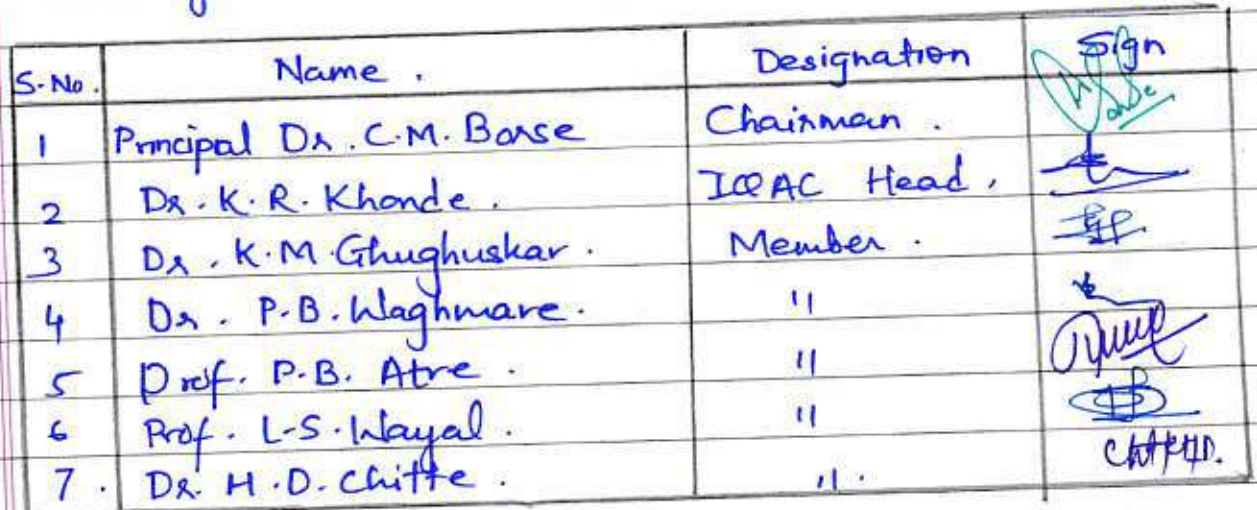 S.No. Name. Designation Sign
1 Principal Dr. C.M. Borse Chairman.
2 Dr. K.R. Khonde. IQAC Head.
3 Dr. K.M Ghughuskar. Member.
4 Dr. P.B. Waghmare. "
5 Prof. P.B. Atre. "
6 Prof. L.S. Wayal. "
7. Dr. H.D. Chitte. ".